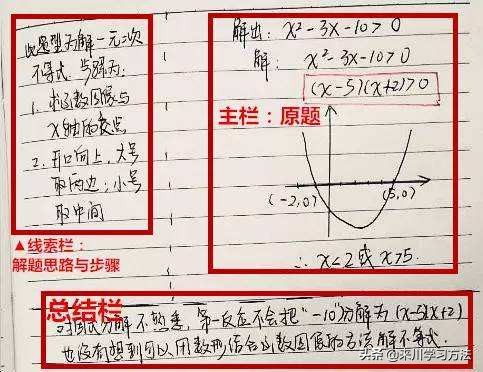 此题型为解一元二次
不等式 步骤为:
1. 求函数图像与
X轴的交点
2. 开口向上,大号
取两边;小号
取中间
▲线索栏:
解题思路与步骤
解出: x²-3x-10>0
解: x²-3x-10>0
(x-5)(x+2)>0
主栏:原题
(-2,0) (5,0)
∴ x<2或x>5.
总结栏
对因式分解不熟悉,第一反应不会把"-10"分解为(x-5)(x+2)
也没有想到可以用数形结合以函数图像的方法解不等式.
头条@禾川学习方法